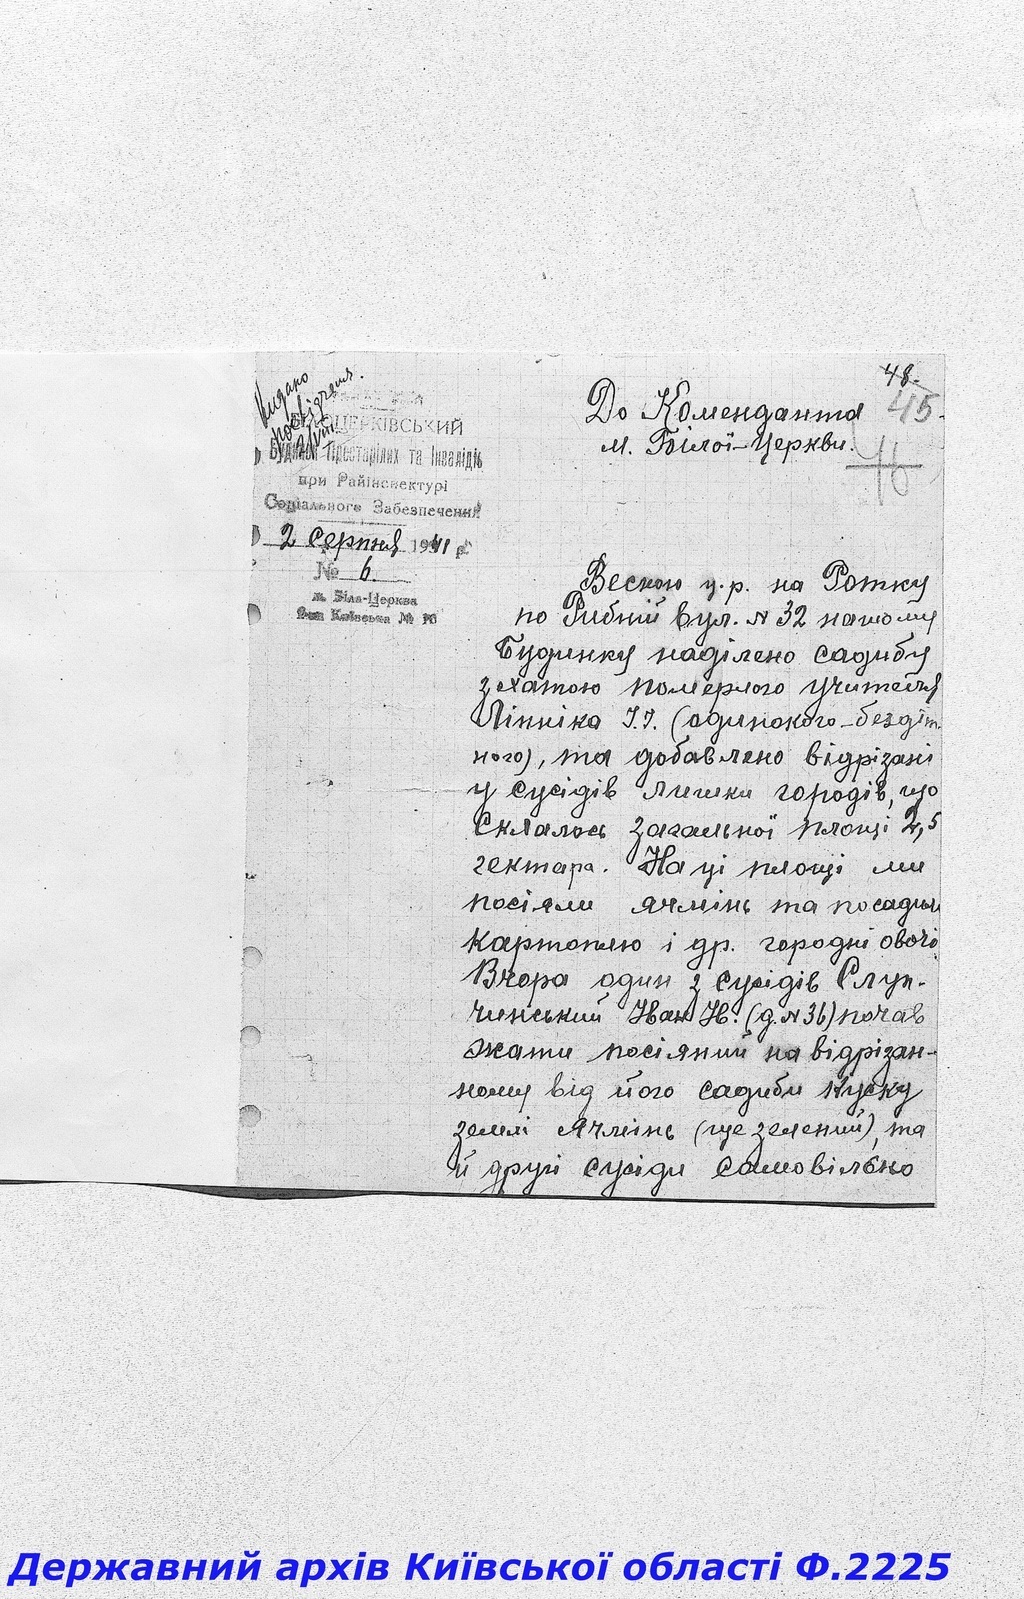 Видано
посвідчення.
2/VIII
48.
45
46
ЦЕРКІВСЬКИЙ
Будинок Престарілих та Інвалідів
при Райінспектурі
Соціального Забезпечення
2 серпня 1941 р.
№ 6.
м. Біла-Церква
До Коменданта
м. Білої-Церкви.
Весною ц.р. на Ротку
по Рибній вул. № 32 нашому
Будинку наділено садибу
з хатою померлого учителя
Лінніка І.І. (одинокого-бездіт-
ного), та добавлено відрізані
у сусідів лишки городів, що
склалось загальної площі 2,5
гектара. На ці площі ми
посіяли ячмінь та посадили
картоплю і др. городні овочі
Вчора один з сусідів Слуп-
чинський Іван Н. (д. № 36) почав
жати посіяний на відрізан-
ному від його садиби куску
землі ячмінь (ще зелений), та
й другі сусіди самовільно
Державний архів Київської області Ф.2225